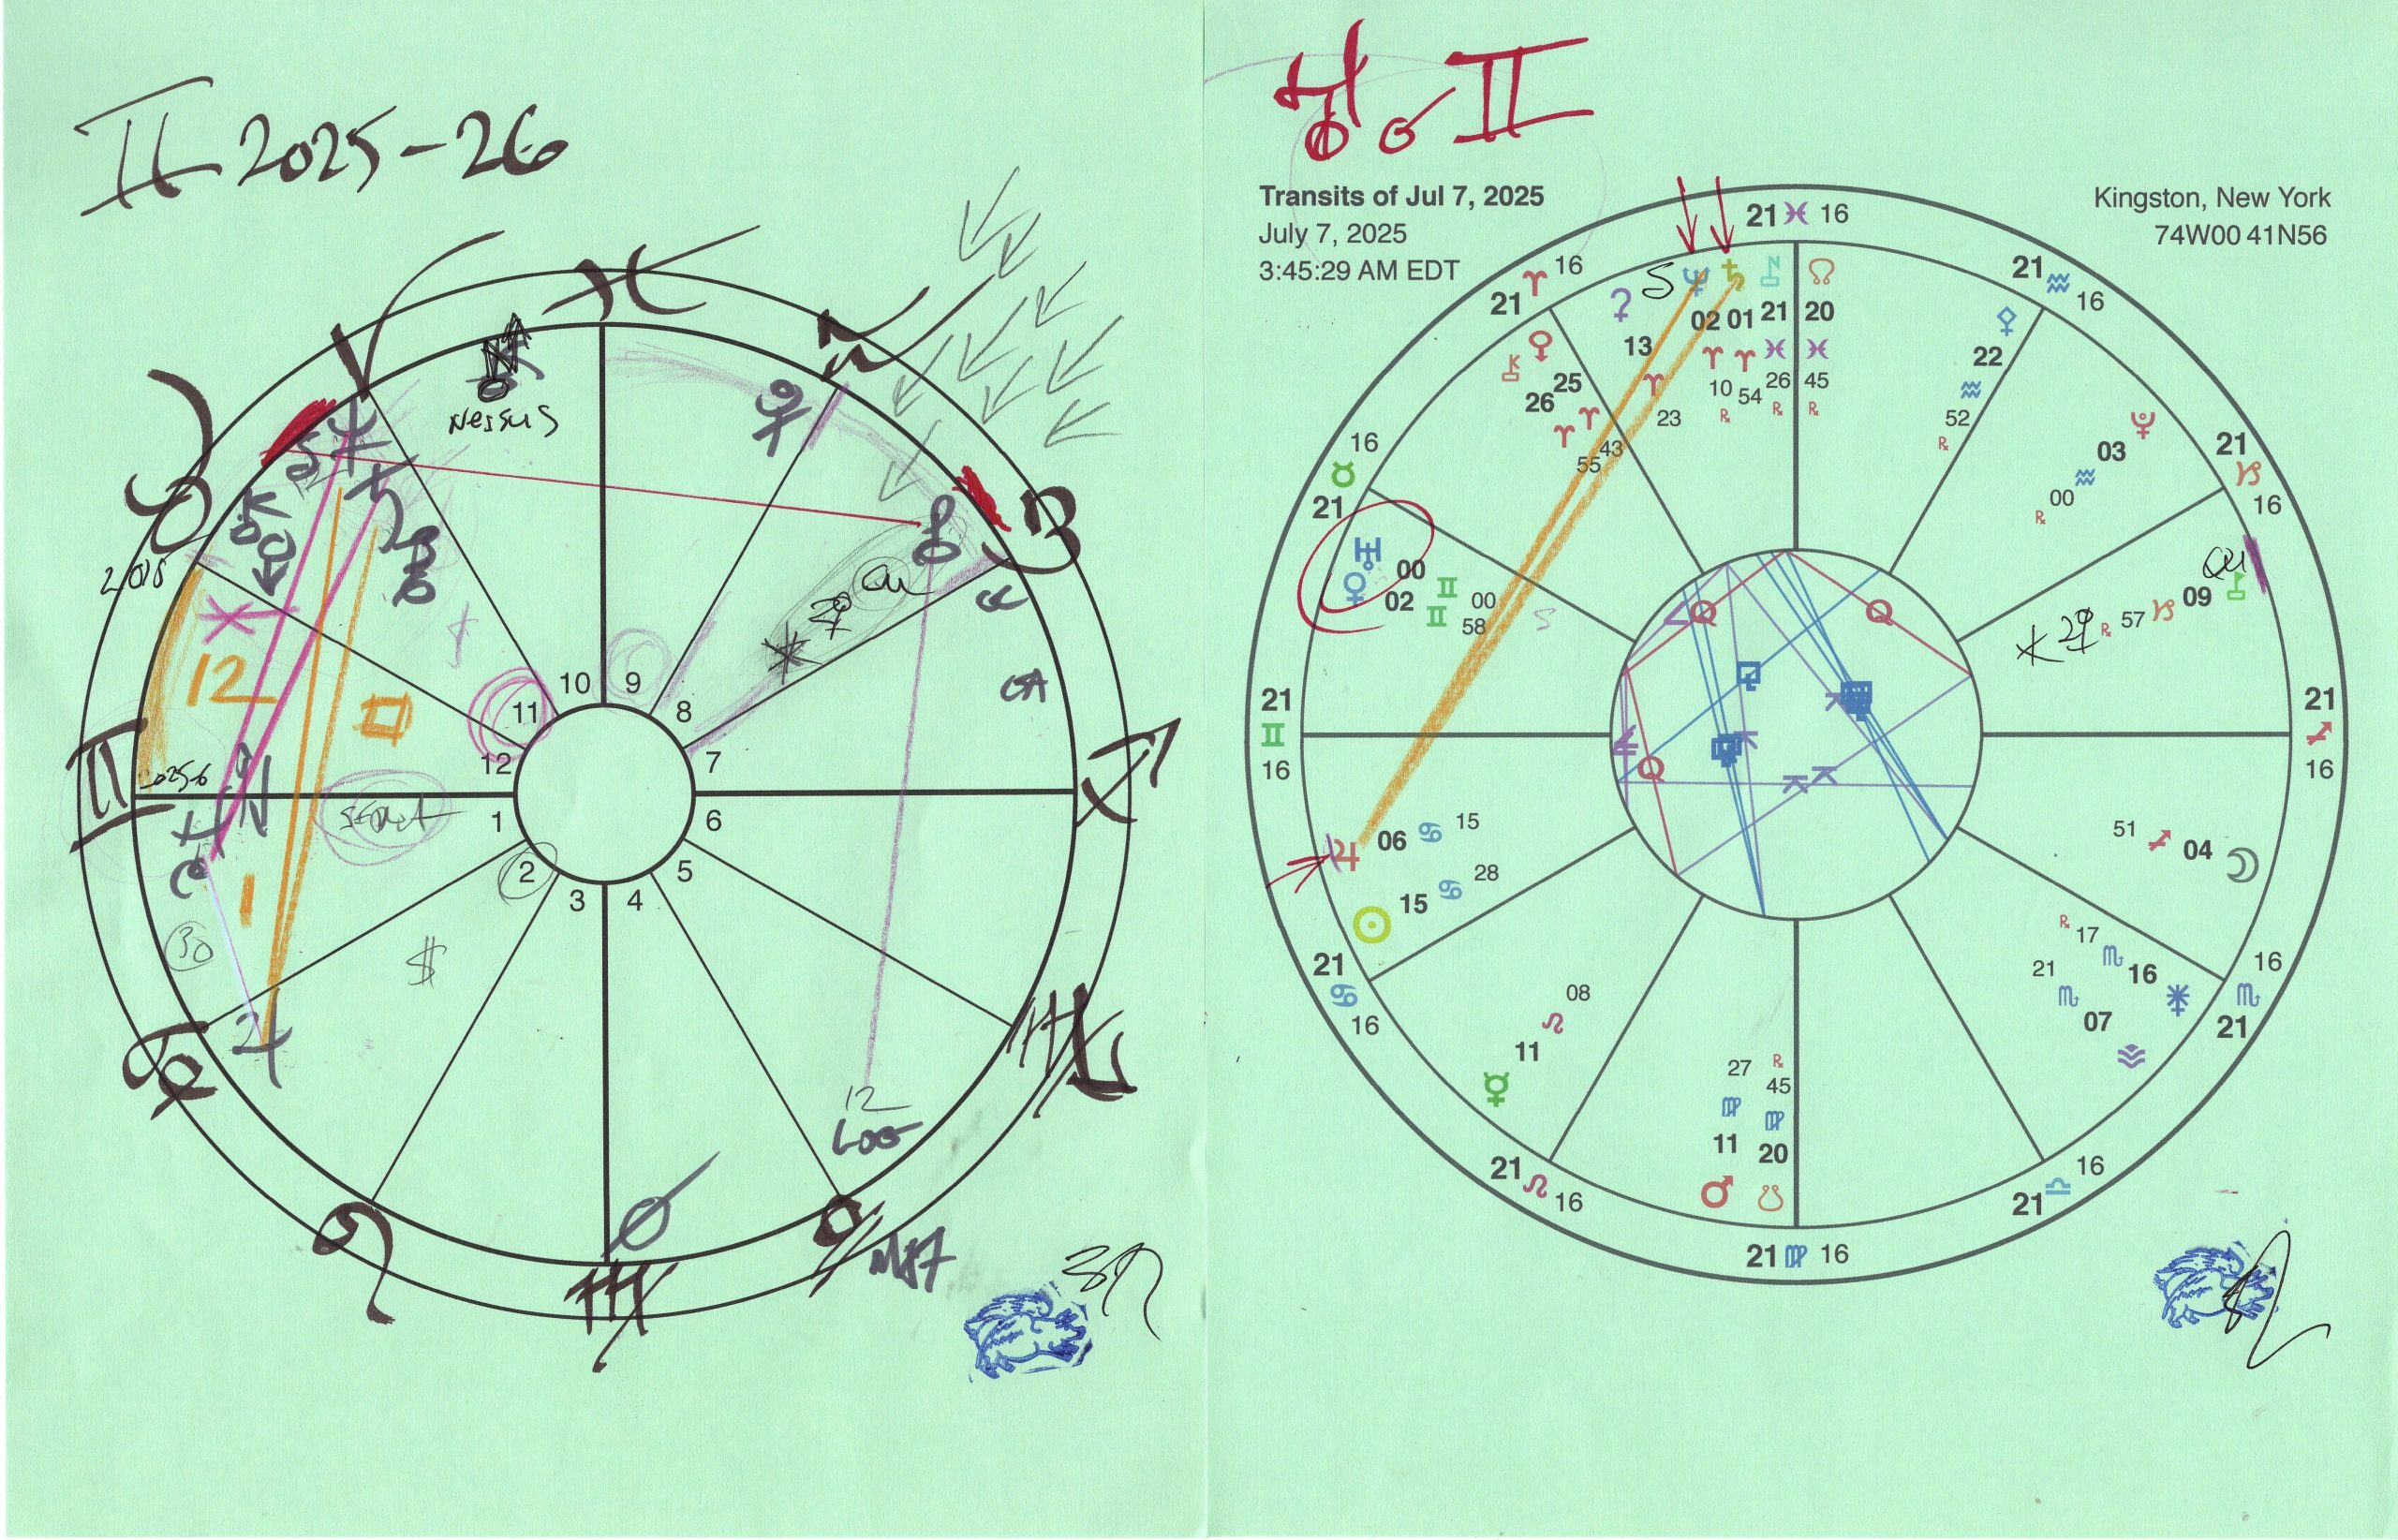 ♊ 2025-26
♓
♒
♈
♑
♉
♐
♊
♏
♋
♌
♍
Nessus
2018
12
10
9
11
8
12
7
1
6
2
5
3
4
1
30
$
12
♅ ☌ ♊
Transits of Jul 7, 2025
July 7, 2025
3:45:29 AM EDT
Kingston, New York
74W00 41N56
21 ♓ 16
21 ♒ 16
21 ♈ 16
21 ♑ 16
16 ♉ 21
21 ♊ 16
21 ♐ 16
21 ♋ 16
16 ♏ 21
21 ♌ 16
21 ♎ 16
21 ♍ 16
♆ 02 ♈ 10 ℞
♄ 01 ♈ 54
21 ♓ 26 ℞
☊ 20 ♓ 45 ℞
⚳ 13 ♈ 23
⚴ 22 ♒ 52 ℞
♇ 03 ♒ 00 ℞
25 ♈ 43
⚷ 26 ♈ 55
♅ 00 ♊ 00
♀ 02 ♊ 58
09 ♑ 57 ℞
♃ 06 ♋ 15
☉ 15 ♋ 28
☽ 04 ♐ 51
⚵ 16 ♏ 17 ℞
07 ♏ 21
☿ 11 ♌ 08
♂ 11 ♍ 27
☋ 20 ♍ 45 ℞
Q
Q
Q